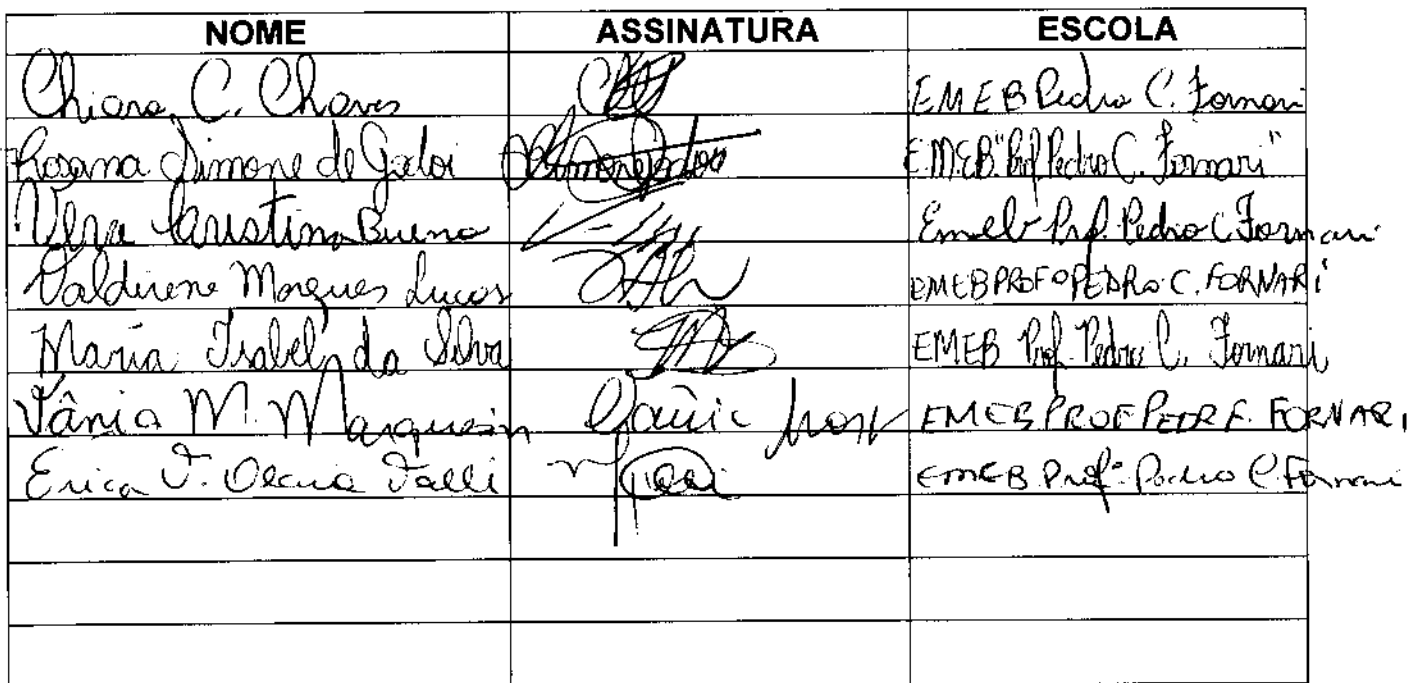 NOME ASSINATURA ESCOLA
Chiara C. Chaves EMEB Pedro C. Fornari
Rosana Simone de Godoi EMEB "Prof Pedro C. Fornari"
Vera Cristina Bueno Emeb Prof. Pedro C Fornari
Valdirene Marques Lucas EMEB PROFº PEDRO C. FORNARI
Maria Isabel da Silva EMEB Prof. Pedro C. Fornari
Vânia M. Marquesin Vânia EMEB PROF PEDR F. FORNARI
Erica Talli EMEB Profº Pedro C Fornari